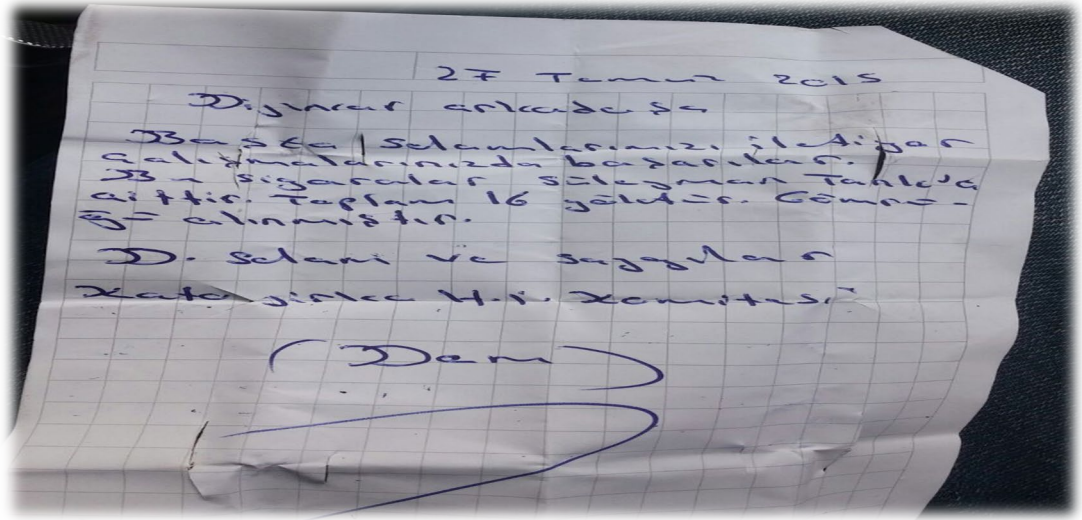 27 Temmuz 2015
Dijwar arkadaşa
Başta selamlarımızı iletiyor
çalışmalarınızda başarılar.
Bu sigaralar Süleyman Tanlı'ya
aittir. Toplam 16 yüktür. Gümrü-
ğü alınmıştır.
D. selam ve saygılar
Kato jirka H.i. Komitesi
(Dem)